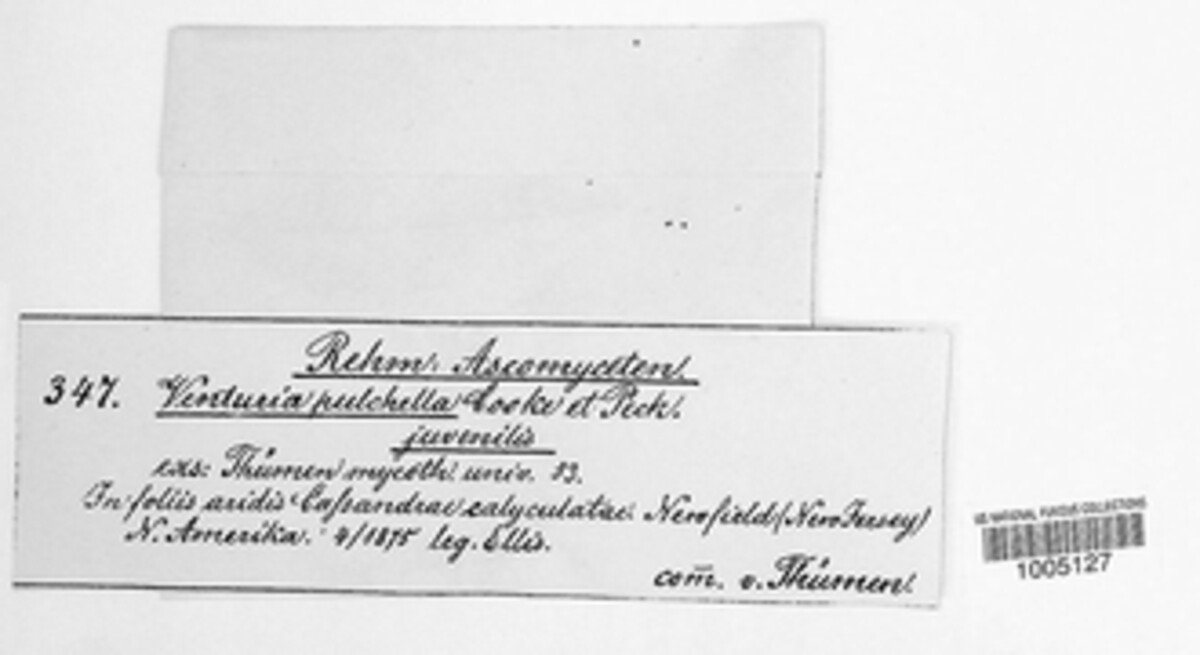 Rehm. Ascomyceten.
347. Venturia pulchella Cooke et Peck.
juvenilis
exs: Thümen mycoth. univ. 53.
In foliis aridis Caſsandrae calyculatae. Newfield (New Jersey)
N. Amerika. 4/1875 leg. Ellis.
com̅. v. Thümen.
US NATIONAL FUNGUS COLLECTIONS
1005127